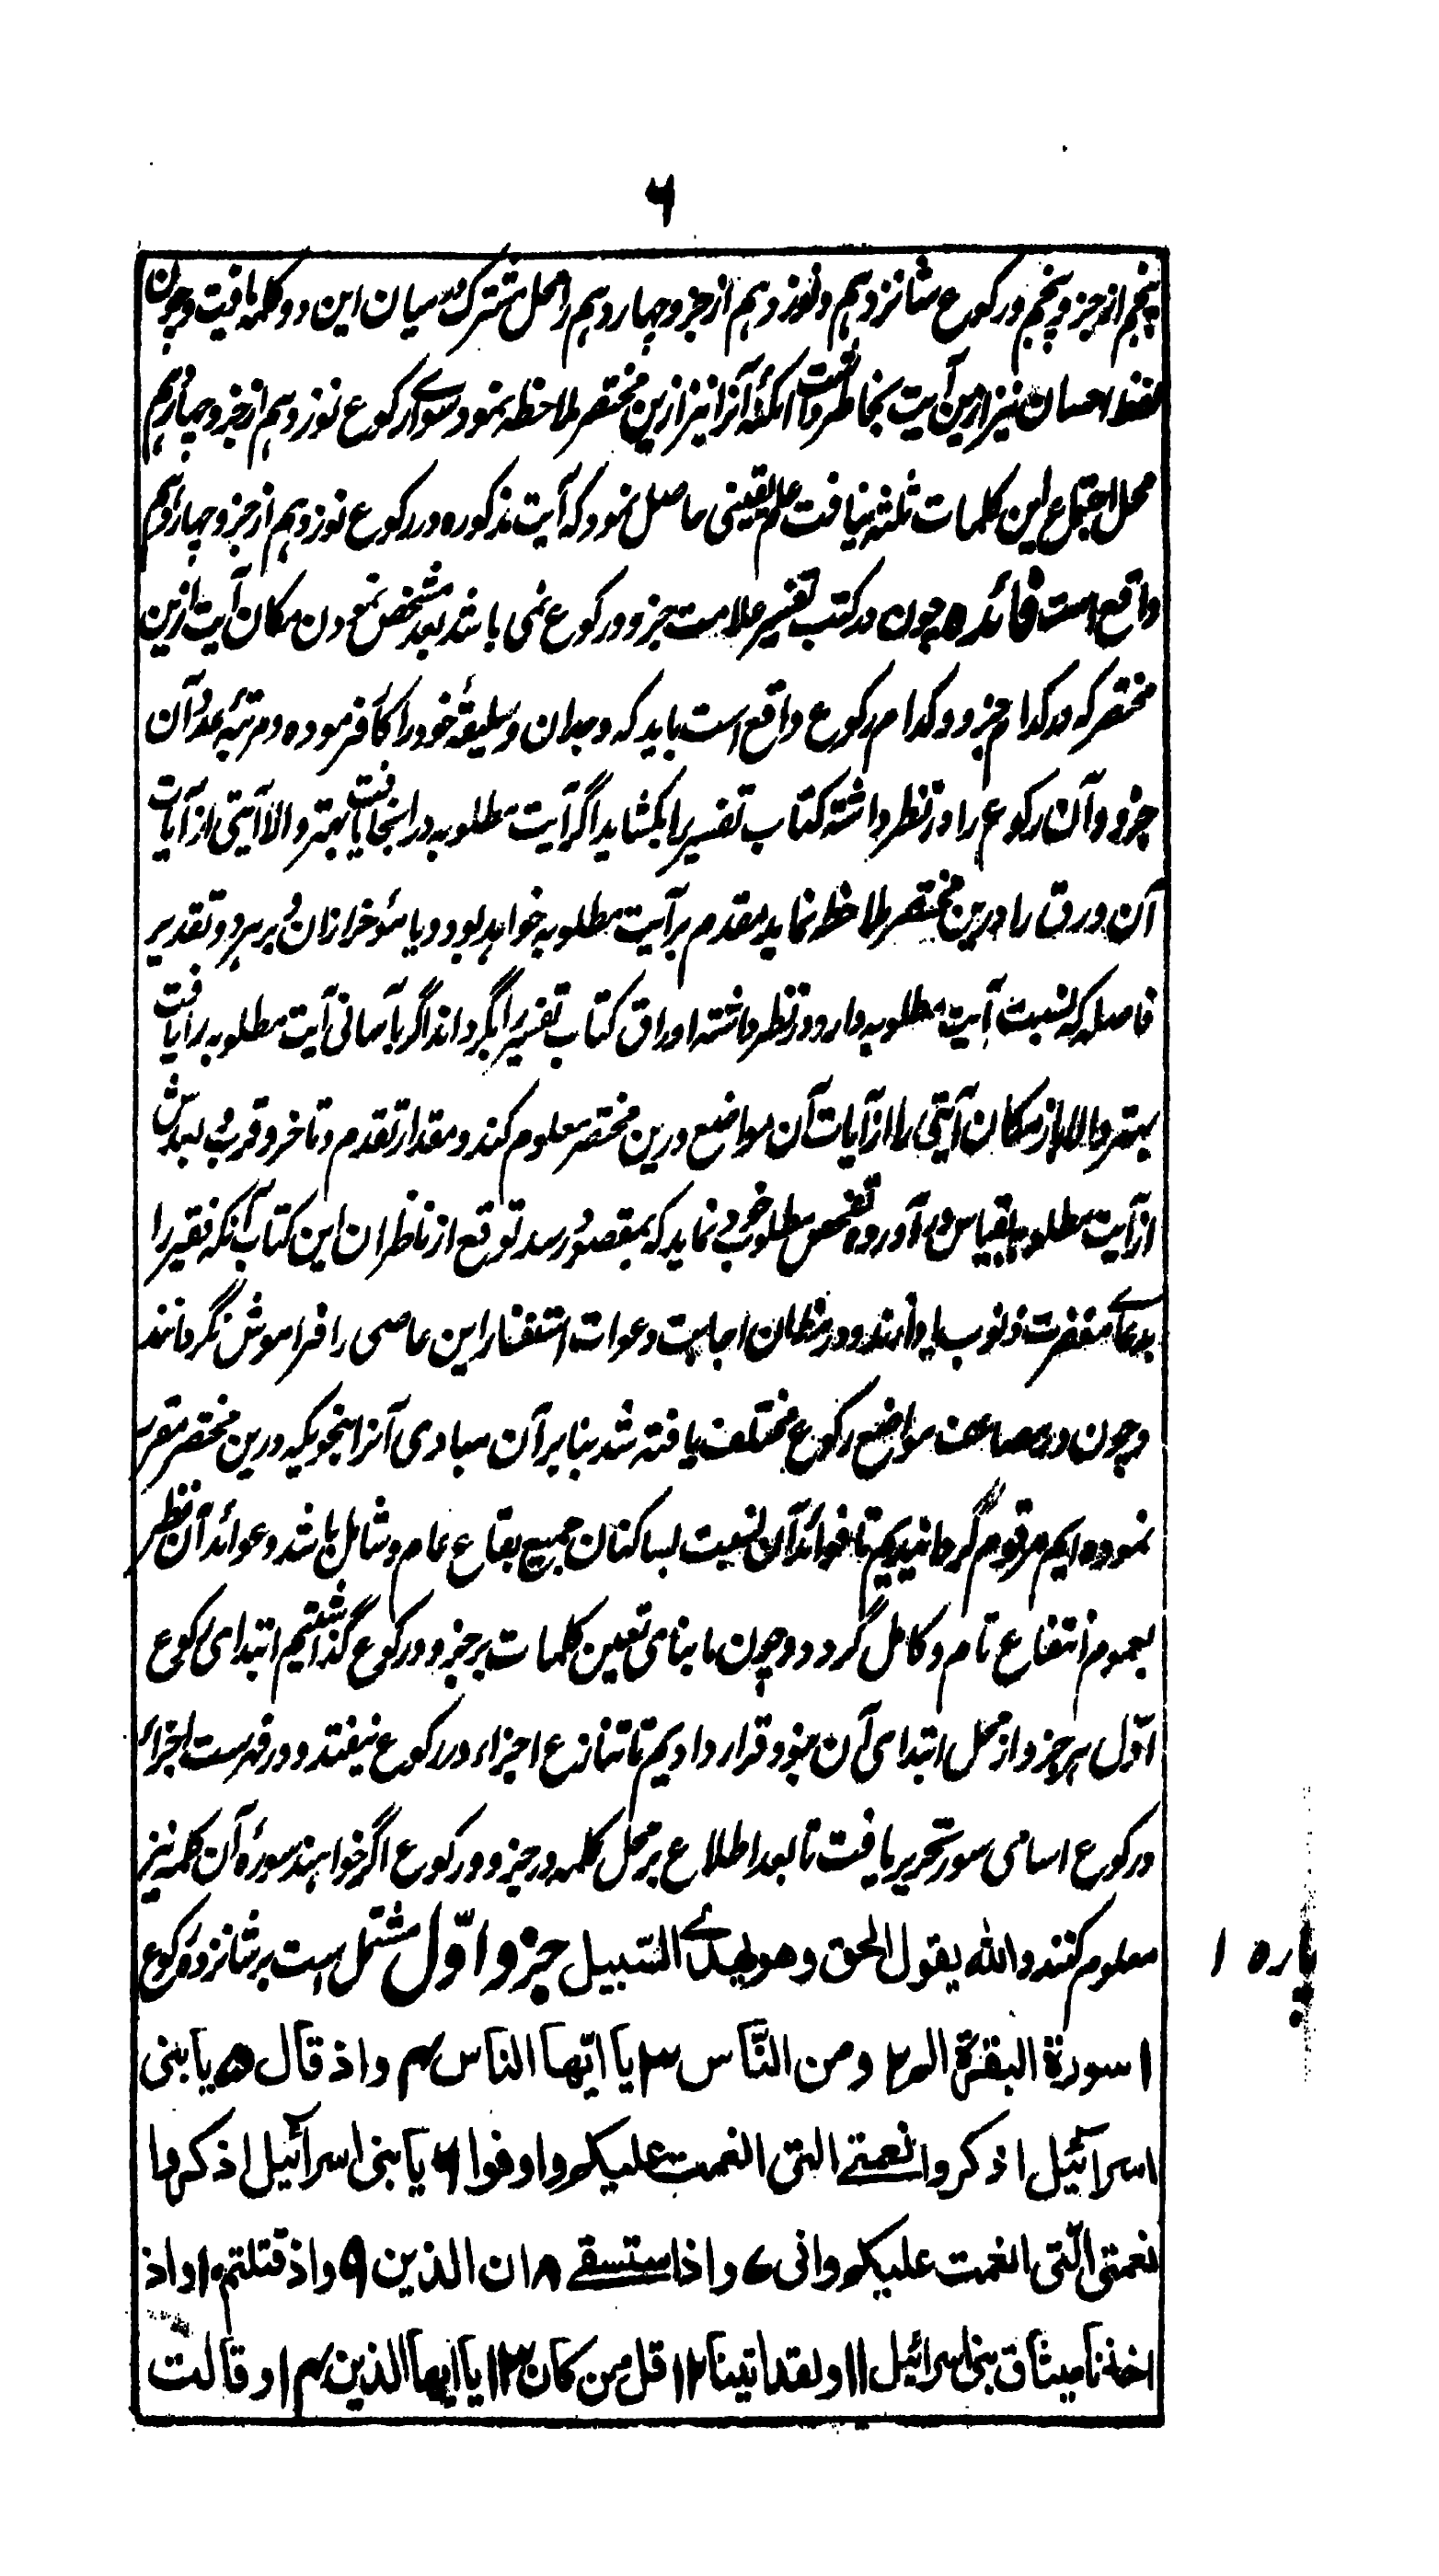 ۶
پنجم از جزو پنجم و رکوع شانزدهم و نوزدهم از جزو چهاردهم را محل مشترک میان این دو کلمه یافت و چون
لفظ احسان نیز ازین آیت بخاطر داشت امکنهٔ آنرا نیز ازین مختصر ملاحظه نمود سوای رکوع نوزدهم از جزو چهاردهم
محل اجتماع این کلمات ثلثه نیافت علم یقینی حاصل نمود که آیت مذکوره در رکوع نوزدهم از جزو چهاردهم
واقع است فائده چون در کتب تفسیر علامت جزو و رکوع نمی باشد بعد مشخص نمودن مکان آیت ازین
مختصر که در کدام جزو و کدام رکوع واقع است باید که وجدان و سلیقهٔ خود را کار فرموده و مرتبهٔ عدد آن
جزو و آن رکوع را در نظر داشته کتاب تفسیر را بکشاید اگر آیت مطلوبه در اینجا یافت بهتر والا آیتی از آیات
آن ورق را درین مختصر ملاحظه نماید مقدم بر آیت مطلوبه خواهد بود و یا مؤخر ازان و بر هر دو تقدیر
فاصله که نسبت آیت مطلوبه دارد در نظر داشته اوراق کتاب تفسیر را بگرداند اگر بآسانی آیت مطلوبه را یافت
بهتر والا باز مکان آیتی را از آیات آن مواضع درین مختصر معلوم کند و مقدار تقدم و تاخر و قرب و بعدش
از آیت مطلوبه بقیاس در آورده تفحص مطلوب خود نماید که بمقصود رسد توقع از ناظران این کتاب آنکه فقیر را
بدعای مغفرت ذنوب یاد آرند و در مظان اجابت دعوات استغفار این عاصی را فراموش نگردانند
و چون در مصاحف مواضع رکوع مختلف یافته شد بنابر آن مبادی آنرا بنحویکه درین مختصر مقرر
نموده ایم مرقوم گردانیدیم تا فوائد آن نسبت بساکنان جمیع بقاع عام و شامل باشد و عوائد آن نظر
بعموم انتفاع تام و کامل گردد و چون ما بنای تعین کلمات بر جزو و رکوع گذاشتیم ابتدای رکوع
اوّل هر جزو از محل ابتدای آن جزو قرار دادیم تا تنازع اجزاء در رکوع نیفتد و در فهرست اجزا
و رکوع اسامی سور تحریر یافت تا بعد اطلاع بر محل کلمه در جزو و رکوع اگر خواهند سورهٔ آن کلمه نیز
معلوم کنند والله یقول الحق وهو یهدی السّبیل جزو اوّل مشتمل است بر شانزده رکوع
پاره ۱
۱ سورة البقرة الم ۲ ومن النّاس ۳ یا ایّها الناس ۴ واذ قال ۵ یا بنی
اسرائیل اذکروا نعمتی التی انعمت علیکم واوفوا ۶ یا بنی اسرائیل اذکروا
نعمتی الّتی انعمت علیکم وانی ۷ واذ استسقی ۸ ان الذین ۹ واذ قتلتم ۱۰ واذ
اخذنا میثاق بنی اسرائیل ۱۱ ولقد اتینا ۱۲ قل من کان ۱۳ یا ایها الذین ۱۴ وقالت